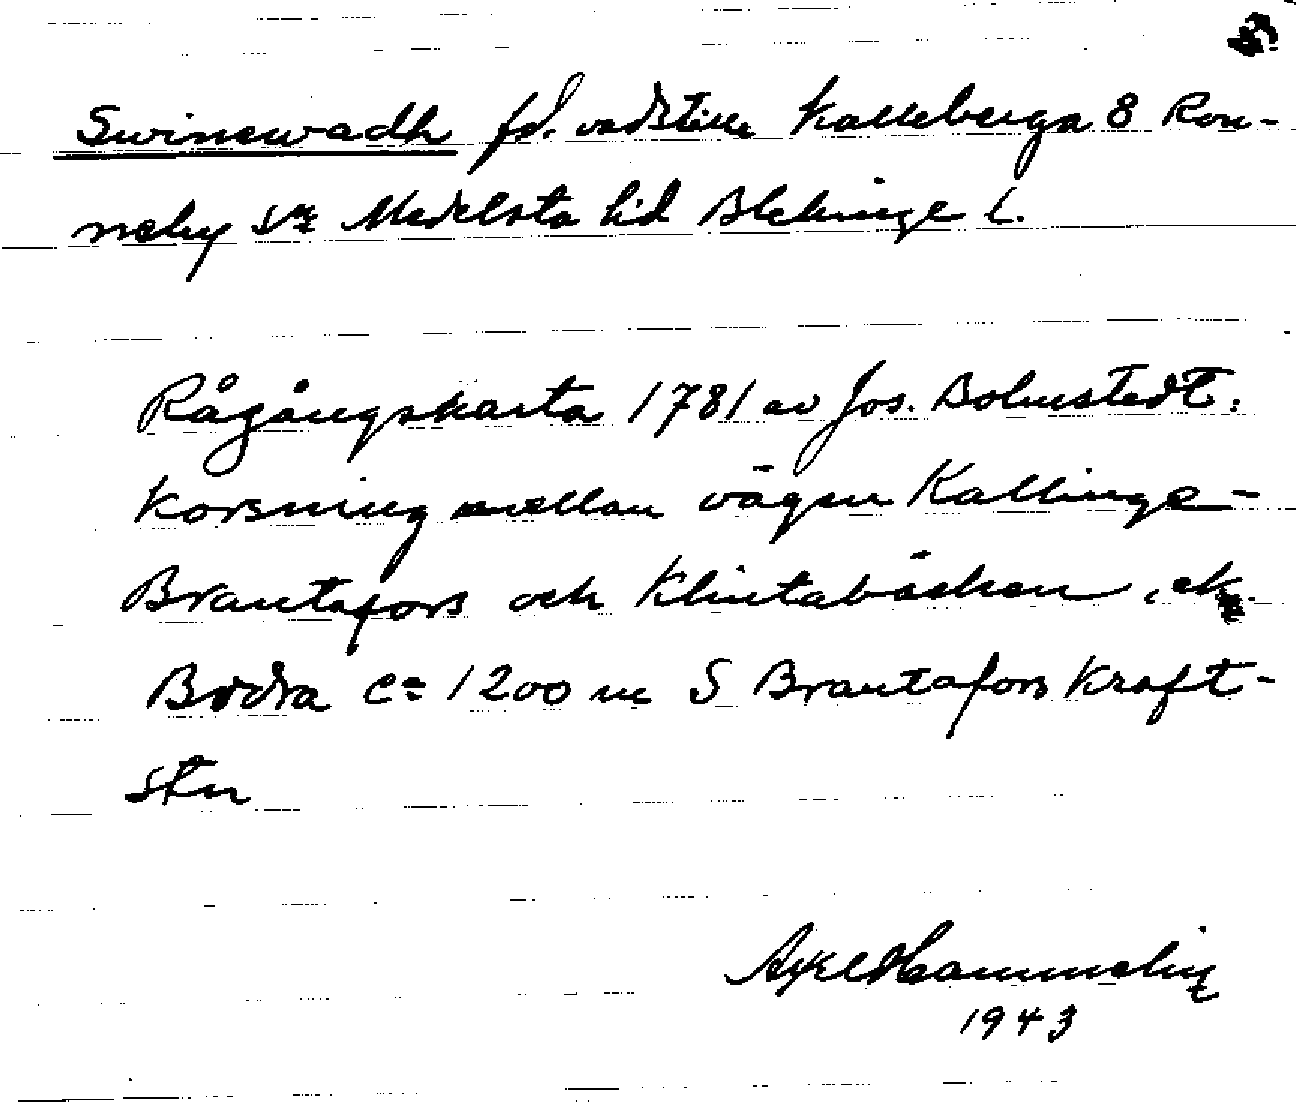 Swinewadh fd. vadställe Kalleberga 8 Ron-
neby sn Medelsta hd Blekinge l.
Rågångskarta 1781 av Jos. Bolmstedt.
Korsning mellan vägen Kallinge-
Brantafors och Klintabäcken, ek.
Bödra c:a 1200 m S Brantafors Kraft-
stn
Axel Hammelin
1943